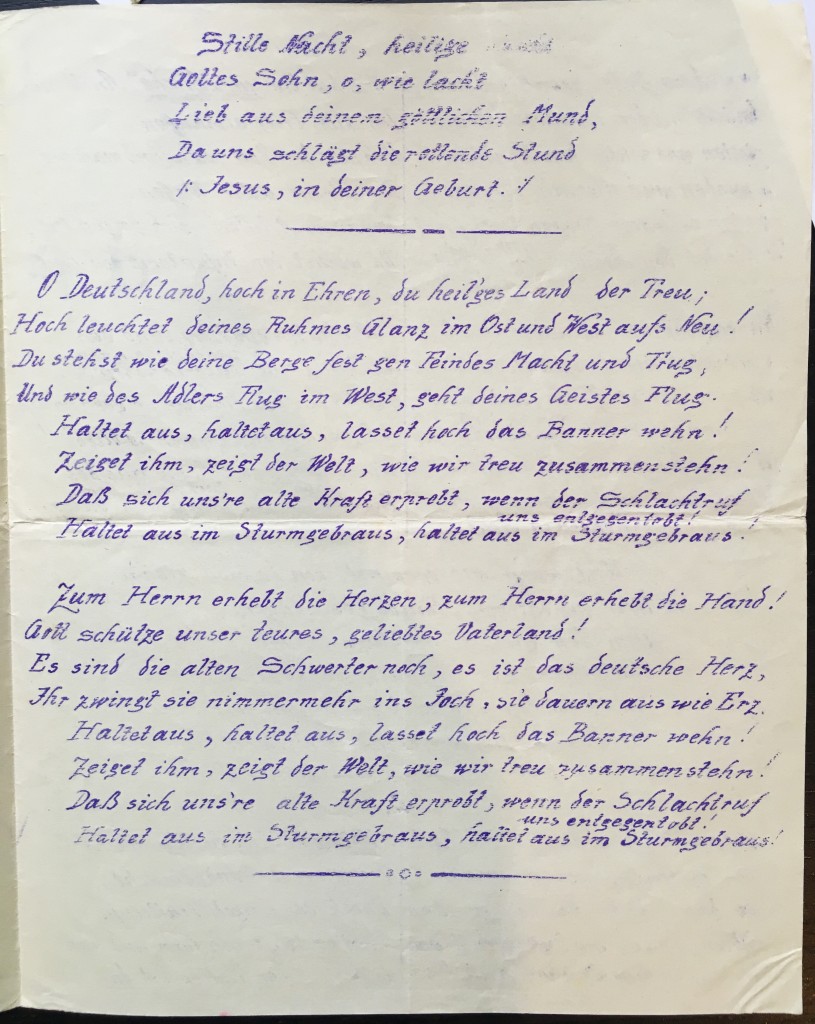 Stille Nacht, heilige
Gottes Sohn, o, wie lacht
Lieb aus deinem göttlichen Mund,
Da uns schlägt die rettende Stund
/: Jesus, in deiner Geburt. :/
O Deutschland, hoch in Ehren, du heil'ges Land der Treu;
Hoch leuchtet deines Ruhmes Glanz im Ost und West aufs Neu!
Du stehst wie deine Berge fest gen Feindes Macht und Trug,
Und wie des Adlers Flug im West, geht deines Geistes Flug.
Haltet aus, haltet aus, lasset hoch das Banner wehn!
Zeiget ihm, zeigt der Welt, wie wir treu zusammenstehn!
Daß sich uns're alte Kraft erprobt, wenn der Schlachtruf
uns entgegentobt!
Haltet aus im Sturmgebraus, haltet aus im Sturmgebraus!
Zum Herrn erhebt die Herzen, zum Herrn erhebt die Hand!
Gott schütze unser teures, geliebtes Vaterland!
Es sind die alten Schwerter noch, es ist das deutsche Herz,
Ihr zwingt sie nimmermehr ins Joch, sie dauern aus wie Erz.
Haltet aus, haltet aus, lasset hoch das Banner wehn!
Zeiget ihm, zeigt der Welt, wie wir treu zusammenstehn!
Daß sich uns're alte Kraft erprobt, wenn der Schlachtruf
uns entgegentobt!
Haltet aus im Sturmgebraus, haltet aus im Sturmgebraus!